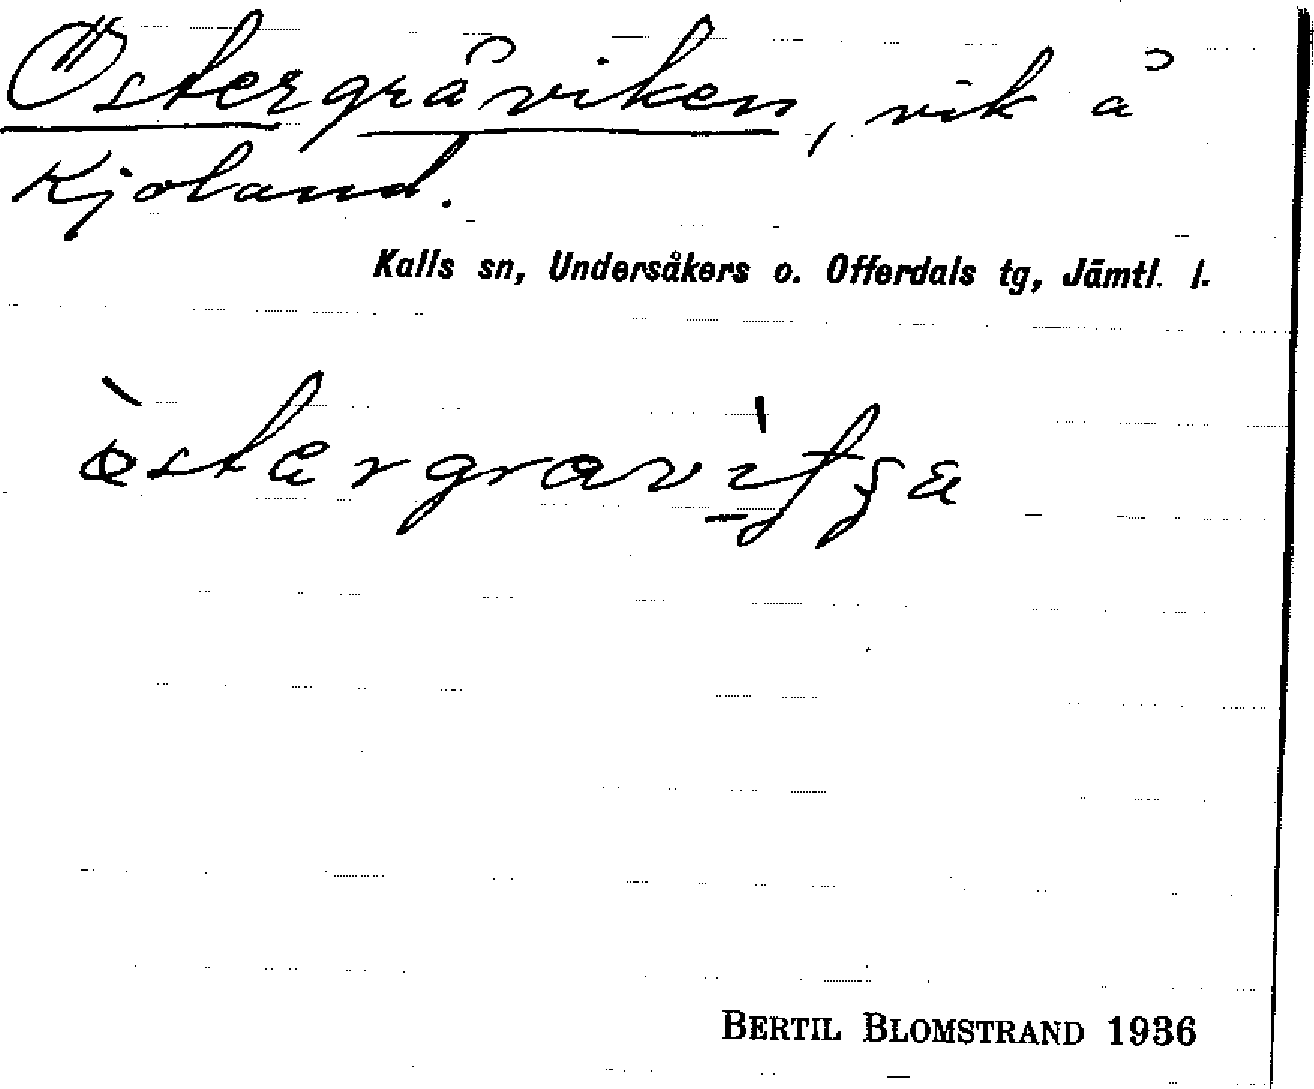 Östergråviken, vik å
Kjoland.
Kalls sn, Undersåkers o. Offerdals tg, Jämtl. l.
BERTIL BLOMSTRAND 1936